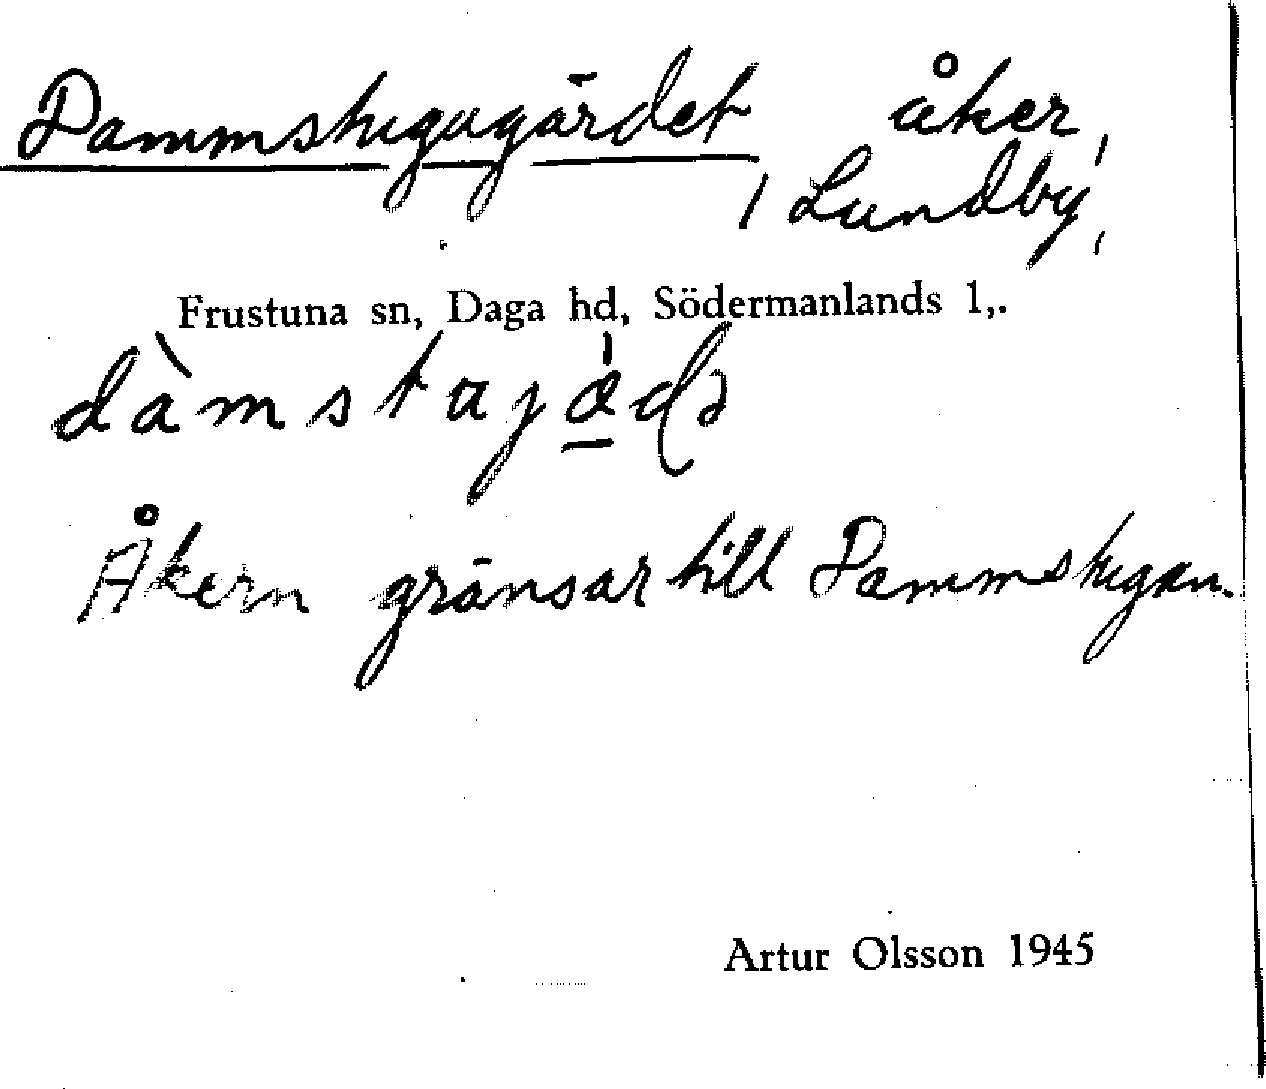 Dammstugugärdet åker,
i Lundby,
Frustuna sn, Daga hd, Södermanlands l,.
Åkern gränsar till Dammstugan.
Artur Olsson 1945